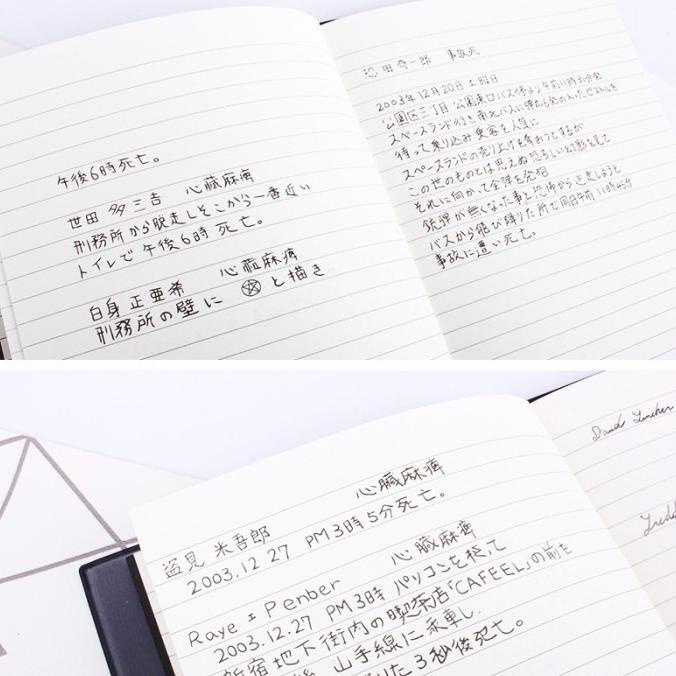 午後6時死亡。
世田 多三吉 心臓麻痺
刑務所から脱走しそこから一番近い
トイレで午後6時 死亡。
白身 正亜希 心臓麻痺
刑務所の壁に と描き
恐田奇一郎 事故死
2003年12月20日土曜日
公園区三丁目 公園東口バス停より午前11時31分発
スペースランド行き南北バスに弾丸6発の入ったピストルを
持って乗り込み乗客を人質に
スペースランドの売り上げを奪おうとするが
この世のものとは思えぬ恐ろしい幻影を見て
それに向かって全弾を発砲
銃弾が無くなった事と恐怖から逃走しようと
バスから飛び降りた所で同日午前11時45分
事故に遭い死亡。
心臓麻痺
盗見 米吾郎
2003.12 27 PM3時5分死亡。
心臓麻痺
Raye = Penber
2003.12.27 PM3時 パソコンを持って
新宿地下街内の喫茶店「CAFEEL」の前を
後 山手線に乗車し
りた3秒後死亡。